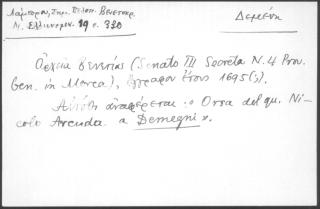 Λάμπρου, Σημ. Πελοπ. Βενετοκρ.
Ν. Ελληνομν. 19 σ. 320
Δεμένη
Αρχεία Βενετίας (Senato III Secreta N. 4 Prov.
ben. in Morea), έγγραφον έτους 1695 (;).
Αυτόθι αναφέρεται: « Orsa del qu. Ni
colo Arcuda a Demegni ».